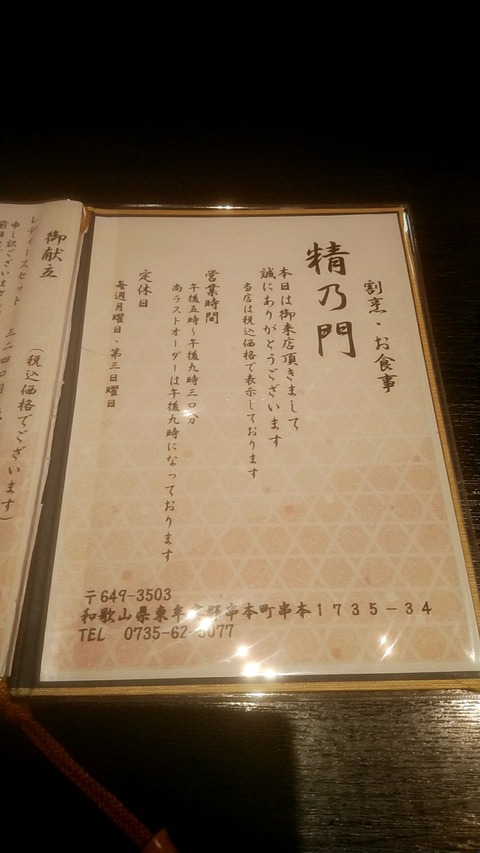 割烹・お食事
精乃門
本日は御来店頂きまして
誠にありがとうございます
当店は税込価格で表示しております
営業時間
午後五時~午後九時三〇分
尚ラストオーダーは午後九時になっております
定休日
毎週月曜日・第三日曜日
〒649-3503
和歌山県東牟婁郡串本町串本1735-34
TEL 0735-62-
御献立
(税込価格でございます)
レディースセット
申し訳ございません